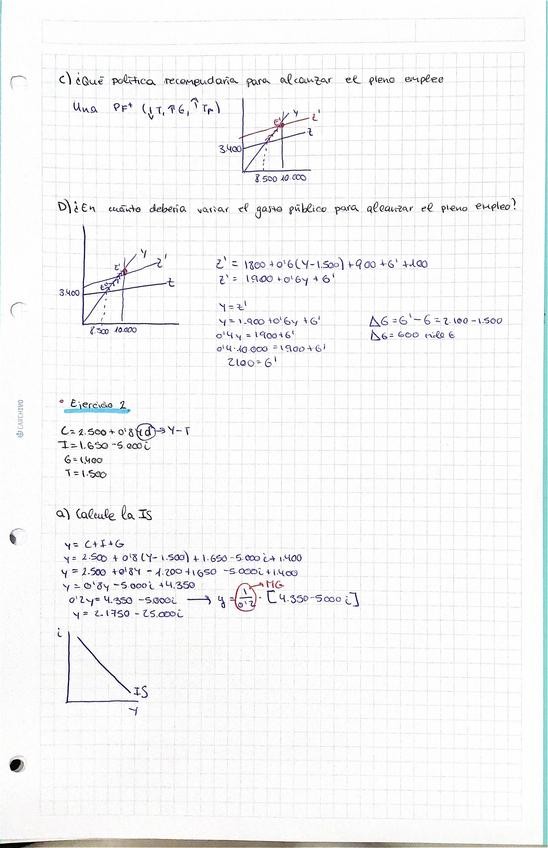 c) ¿Qué política recomendaría para alcanzar el pleno empleo
Una PF+ (↓T, ↑G, ↑Tr)
3.400
Y
Z'
Z
8.500 10.000
D) ¿En cuánto debería variar el gasto público para alcanzar el pleno empleo?
3.400
Y
Z'
Z
8.500 10.000
Z' = 1800 + 0'6(Y-1.500) + 900 + G' + 100
Z' = 1900 + 0'6Y + G'
Y = Z'
Y = 1.900 + 0'6Y + G'
0'4Y = 1900 + G'
0'4·10.000 = 1900 + G'
2100 = G'
ΔG = G' - G = 2.100 - 1.500
ΔG = 600 mil €
• Ejercicio 2.
C = 2.500 + 0'8Yd → Y-T
I = 1.650 - 5.000i
G = 1.400
T = 1.500
CARCHIVO
a) Calcule la IS
Y = C+I+G
Y = 2.500 + 0'8(Y-1.500) + 1.650 - 5.000i + 1.400
Y = 2.500 + 0'8Y - 1.200 + 1.650 - 5.000i + 1.400
Y = 0'8Y - 5000i + 4.350
0'2Y = 4.350 - 5.000i → Y = 1/0'2 · [4.350 - 5000i]
MG
Y = 2.1750 - 25.000i
i
IS
Y